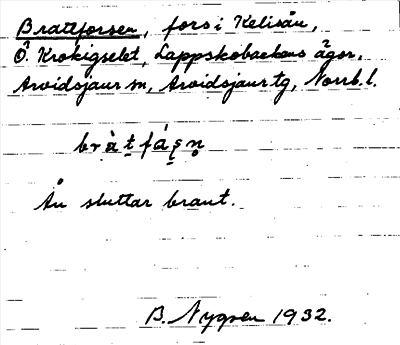 Brattforsen, fors i Kelisån,
Ö. Krokigselet, Lappskobackens ägor,
Arvidsjaur sn, Arvidsjaur tg, Norrb. l.
bràt̤fáṣṇ
Ån sluttar brant.
B. Nygren 1932.